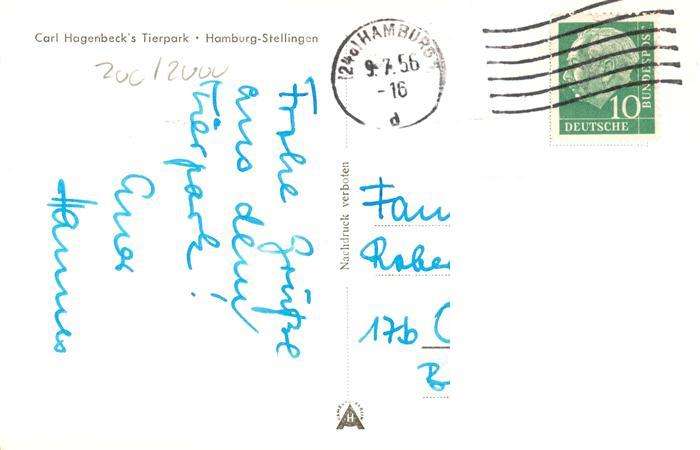 Carl Hagenbeck's Tierpark • Hamburg-Stellingen
ZOO/2000
Frohe Grüße
aus dem
Tierpark!
Euer
Hannes
Nachdruck verboten
(24a) HAMBURG
9.7.56
-16
d
10
DEUTSCHE
BUNDESPOST
Fam
Robe
17b (
H